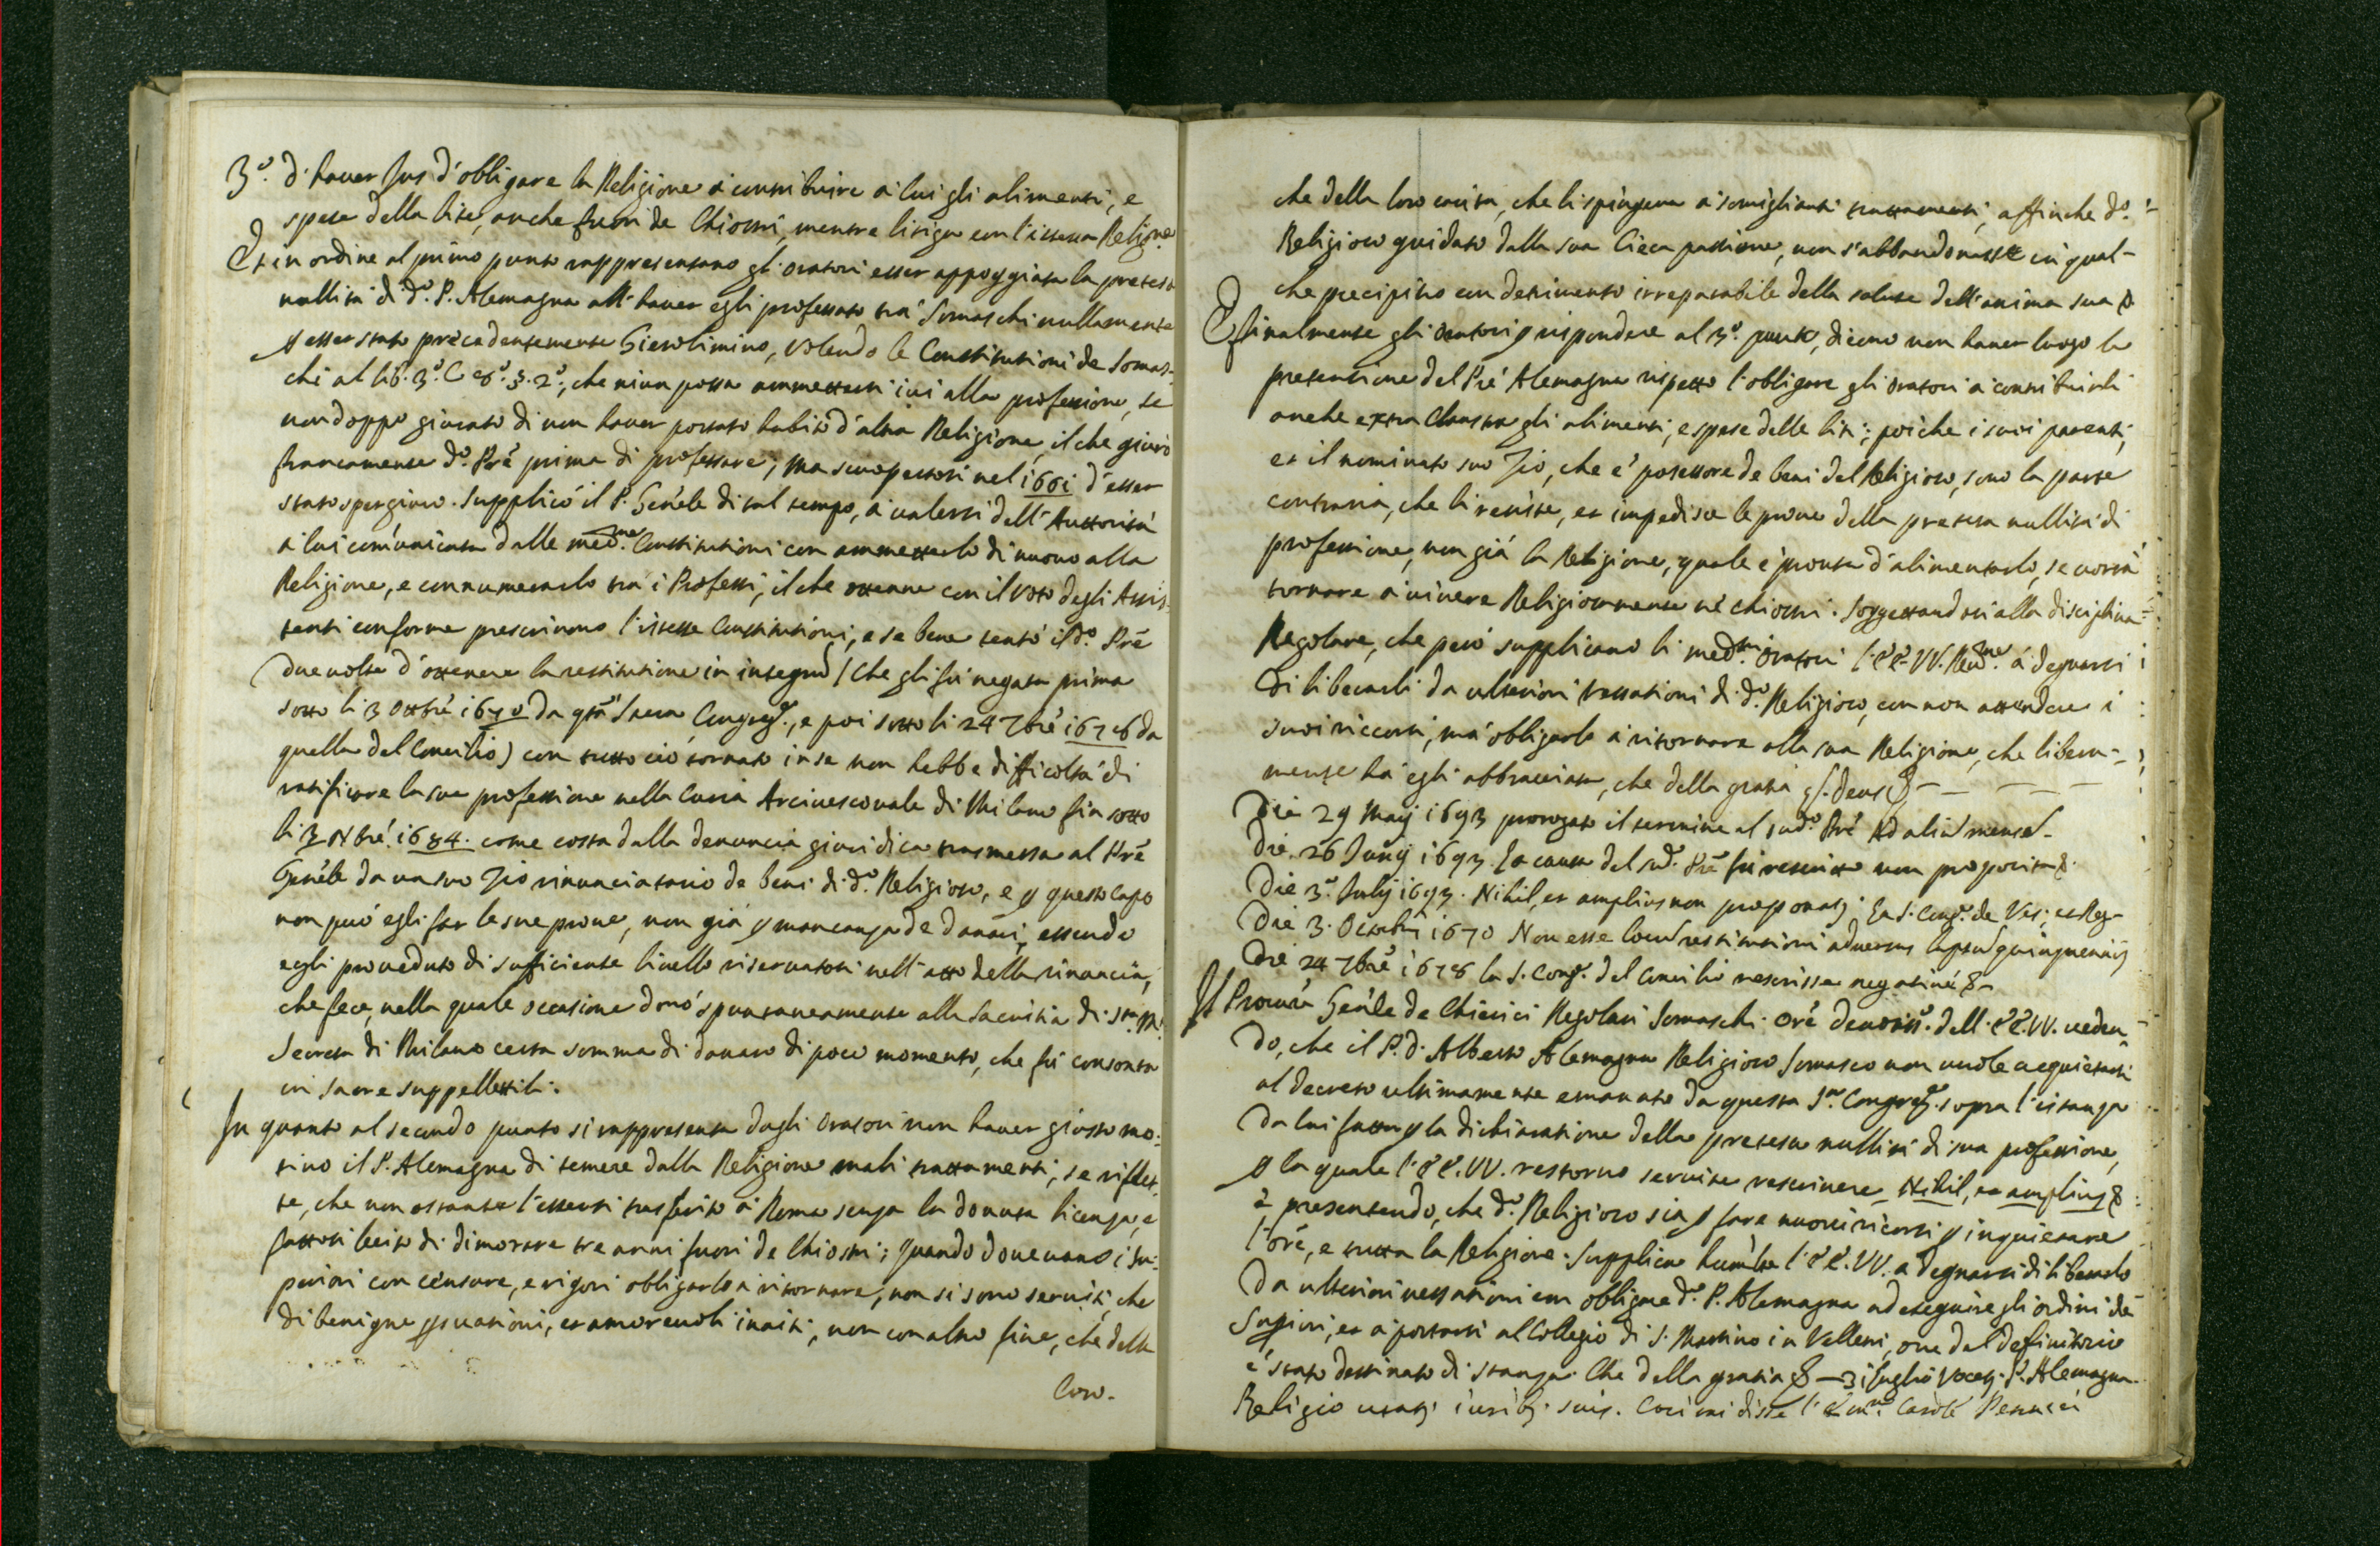 3.º d'hauer Jus d'obligare la Religione à contribuire à lui gli alimenti, e
spese della lite, anche fuori de Chiostri, mentre litiga con l'istessa Religne
Et in ordine al primo punto rappresentano gl'Oratori esser appoggiata la pretesa
nullità di d.º P. Alemagna all'hauer egli professato trà Somaschi nullamente
p esser stato precedentemente Gierolimino, volendo le Constitutioni de Somas-
chi al lib. 3.º C. 8.º §. 2.º, che niun possa ammettersi iui alla professione, se
non doppo giurato di non hauer portato habito d'altra Religione, il che giurò
francamente d.º Prẽ prima di professare; Ma scuopertosi nel 1661 d'esser
stato spergiuro. Supplicò il P. Gen̄ele di tal tempo, à ualersi dell'Auttorità
à lui com̄unicata dalle med.me Constitutioni con ammetterlo di nuouo alla
Religione, e connumerarlo trà i Professi, il che ottenne con il voto degli Assis-
tenti conforme prescriuono l'istesse Constitutioni, e se bene tentò il d.º Prẽ
due uolte d'ottenere la restitutione in integrũ (che gli fù negata prima
sotto li 3 Ottbrẽ 1670 da q̃ta Sacra Congreg.e, e poi sotto li 24 7brẽ 1678 da
quella del Concilio) con tutto ciò tornato in se non hebbe difficoltà di
ratificare la sua professione nella Curia Arciuescouale di Milano fin sotto
li 3 Nbrẽ 1684. come costa dalla denuncia giuridica trasmessa al Prẽ
Gen̄ele da un suo Zio rinunciatario de beni di d.º Religioso, e p questo capo
non può egli far le sue proue, non già p mancanza de danari, essendo
egli proueduto di sufficiente liuello riseruatosi nell'atto della rinuncia,
che fece, nella quale occasione donò spontaneamente alla Sacristia di S.ta M.ª
Secreta di Milano certa somma di danaro di poco momento, che fù consonta
in sacre suppellettili.
In quanto al secondo punto si rappresenta dagli Oratori non hauer giusto mo-
tiuo il P. Alemagna di temere dalla Religione mali trattamenti, se riflet-
te, che non ostante l'essersi trasferito à Roma senza la douuta licenza, e
fattosi lecito di dimorare tre anni fuori de Chiostri; quando doueuano i Su-
periori con censure, e rigori obligarlo à ritornare, non si sono seruiti, che
di benigne psuasioni, et amoreuoli inuiti, non con altro fine, che della
loro.
che della loro carità, che li spingeua à somiglianti trattamenti, affinche d.º
Religioso guidato dalla sua Cieca passione, non s'abbandonasse in qual-
che precipitio con detrimento irreparabile della salute dell'anima sua &
E finalmente gli Oratori p rispondere al 3.º punto, dicono non hauer luogo la
pretensione del Prẽ Alemagna rispetto l'obligare gli Oratori à contribuirli
anche extra Claustra gli alimenti, e spese delle liti; poiche i suoi parenti,
et il nominato suo Zio, che è posessore de beni del Religioso, sono la parte
contraria, che li resiste, et impedisce le proue della pretesa nullità di
professione, non già la Religione, quale è pronta d'alimentarlo, se uorrà
tornare à uiuere Religiosamente nè chiostri. Soggettandosi alla disciplina
Regolare, che però supplicano li med.mi Oratori l'EE. VV. Reu.me à degnarsi
di liberarli da ulteriori vessationi di d.º Religioso, con non attendere i
suoi ricorsi, mà obligarlo à ritornare alla sua Religione, che libera-
mente hà egli abbracciata, che della gratia &
Die 29 Maij 1693 prorogato il termine al sud.º Prẽ Ad aliũ mensẽ
Die 26 Junij 1693. La causa del sud.º Prẽ fù rescritto non proposita &
Die 3.º Julij 1693. Nihil, et amplius non proponatr. La S. Cong.e de Vesc. et Reg.
Die 3. Octobris 1670 Non esse locũ restitutioni aduersus lapsũ quinquennij
Die 24 7brẽ 1678 la S. Cong.e del Concilio rescrisse negatiuè &
Il Procurẽ Gen̄ele de Chierici Regolari Somaschi Orẽ deuotiss.º dell'EE. VV. ueden-
do, che il P. D. Alberto Alemagna Religioso Somasco non uuole acquietarsi
al decreto ultimamente emanato da questa S.ra Congreg.e sopra l'istanza
da lui fatta p la dichiaratione della pretesa nullità di sua professione,
p la quale l'EE. VV. restorno seruite rescriuere Nihil, et amplius &
e presentendo, che d.º Religioso sia p fare nuoui ricorsi p inquietare
l'Orẽ, e tutta la Religione. Supplica humilte l'EE. VV. a degnarsi di liberarlo
da ulteriori uessationi con obligare d.º P. Alemagna ad eseguire gli ordini dè
Supiori, et a portarsi al Collegio di S. Martino in Velletri, oue dal Definitorio
è stato destinato di stanza. Che della gratia & — 31 luglio Vocetr. P. Alemagna
Religio utatr. iuribs. suis. Cosi mi disse l'Em.mo Cardle